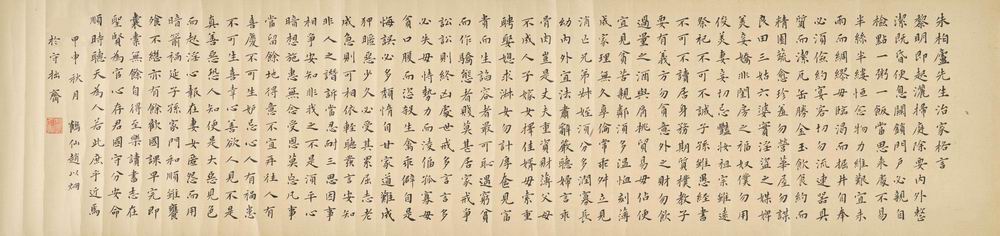 朱柏廬先生治家格言
黎明即起灑掃庭除要內外整
潔既昏便息關鎖門戶必親自
檢點一粥一飯當思來處不易
半絲半縷恒念物力維艱宜未
雨而綢繆毋臨渴而掘井自奉
必須儉約宴客切勿流連器具
質而潔瓦缶勝金玉飲食約而
精園蔬愈珍羞勿營華屋勿謀
良田三姑六婆實淫盜之媒婢
美妾嬌非閨房之福奴僕勿用
俊美妻妾切忌艷妝祖宗雖遠
祭祀不可不誠子孫雖愚經書
不可不讀居身務期質樸教子
要有義方勿貪意外之財勿飲
過量之酒與肩挑貿易毋佔便
宜見貧苦親鄰須多溫恤刻薄
成家理無久享倫常乖舛立見
消亡兄弟叔姪須分多潤寡長
幼內外宜法肅辭嚴聽婦言乖
骨肉豈是丈夫重貲財薄父母
不成人子嫁女擇佳婿毋索重
聘娶媳求淑女勿計厚奩見富
貴而生諂容者最可恥遇窮貧
而作驕態者賤莫甚居家戒爭
訟訟則終凶處世戒多言言多
必失毋恃勢力而凌偪孤寡毋
貪口腹而恣殺生禽乖僻自是
悔誤必多頹惰自甘家道難成
狎暱惡少久必受其累屈志老
成急則可相依輕聽發言安知
非人之譖訴當忍耐三思因事
相爭安知非我之不是須平心
暗想施惠無念受恩莫忘凡事
當留餘地得意不宜再往人有
喜慶不可生妒忌心人有禍患
不可生喜幸心善欲人見不是
真善惡恐人知便是大惡見色
而起淫心報在妻女匿怨而用
暗箭禍延子孫家門和順雖饔
飧不繼亦有餘歡國課早完即
囊橐無餘自得至樂讀書志在
聖賢為官心存君國守分安命
順時聽天為人若此庶乎近焉
甲申秋月 鶴仙趙以炯
於守拙齋